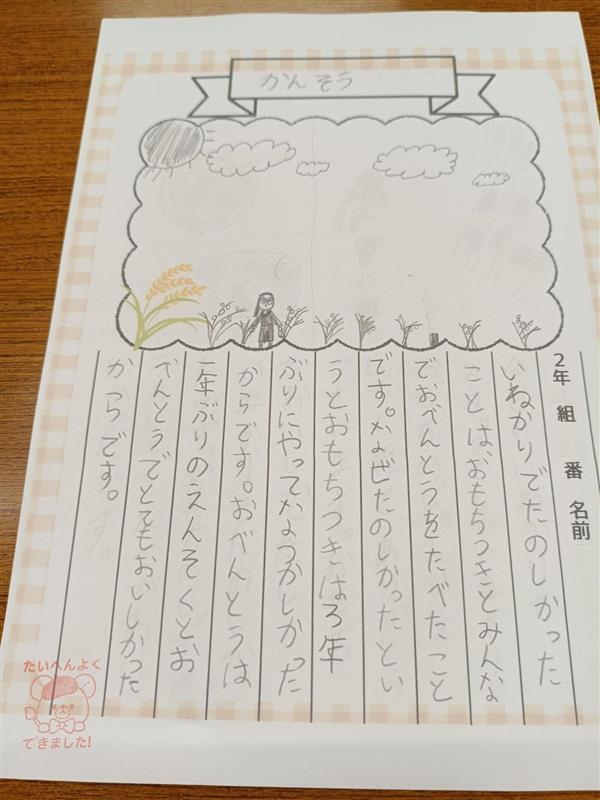 かんそう
2年 組 番 名前
いねかりでたのしかった
ことは、おもちつきとみんな
でおべんとうをたべたこと
です。なぜたのしかったとい
うとおもちつきは3年
ぶりにやってなつかしかった
からです。おべんとうは
一年ぶりのえんそくとお
べんとうでとてもおいしかった
からです。
たいへんよく
できました!